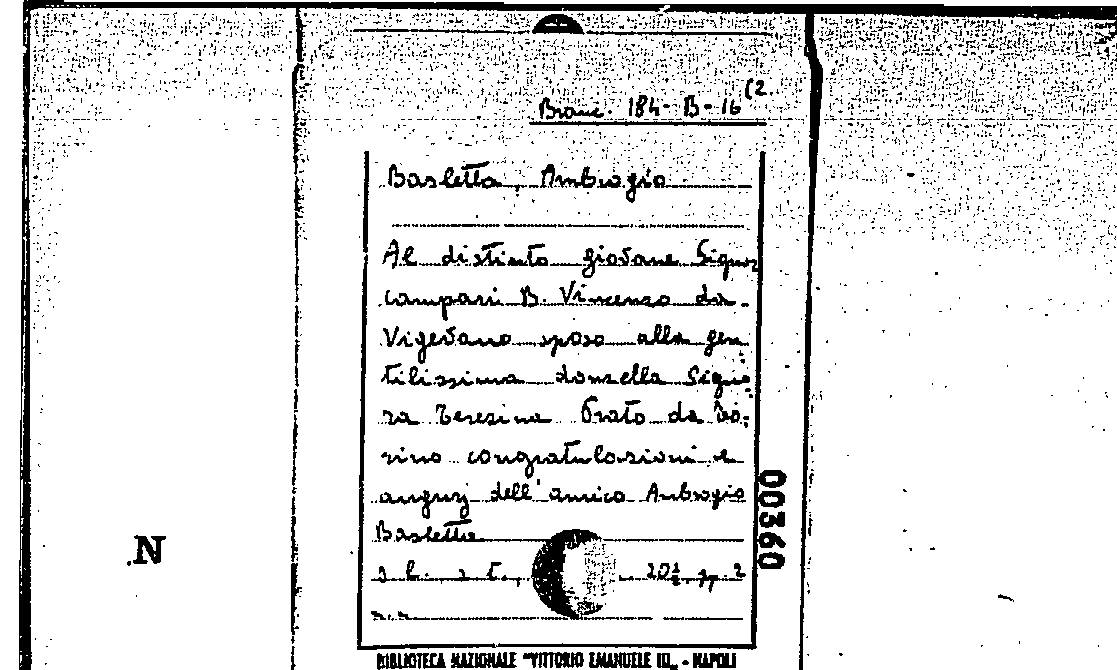 Branc. 184-B-16 (2.
Basletta, Ambrogio
Al distinto giovane Signor
campari B. Vincenzo da
Vigevano sposo alla gen
tilissima donzella Signo
ra Teresina Prato da To:
rino congratulazioni e
augurj dell'amico Ambrogio
Basletta
s. l. s. t., 20½. pp. 2
00360
N
BIBLIOTECA NAZIONALE "VITTORIO EMANUELE III„ - NAPOLI